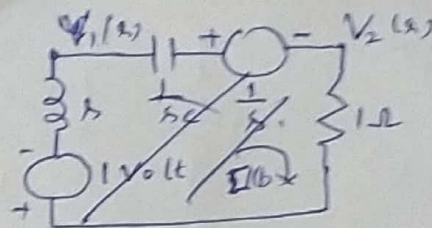 V₁(s)
+
-
V₂(s)
1/sc
1/s
s
1Ω
-
1 volt
+